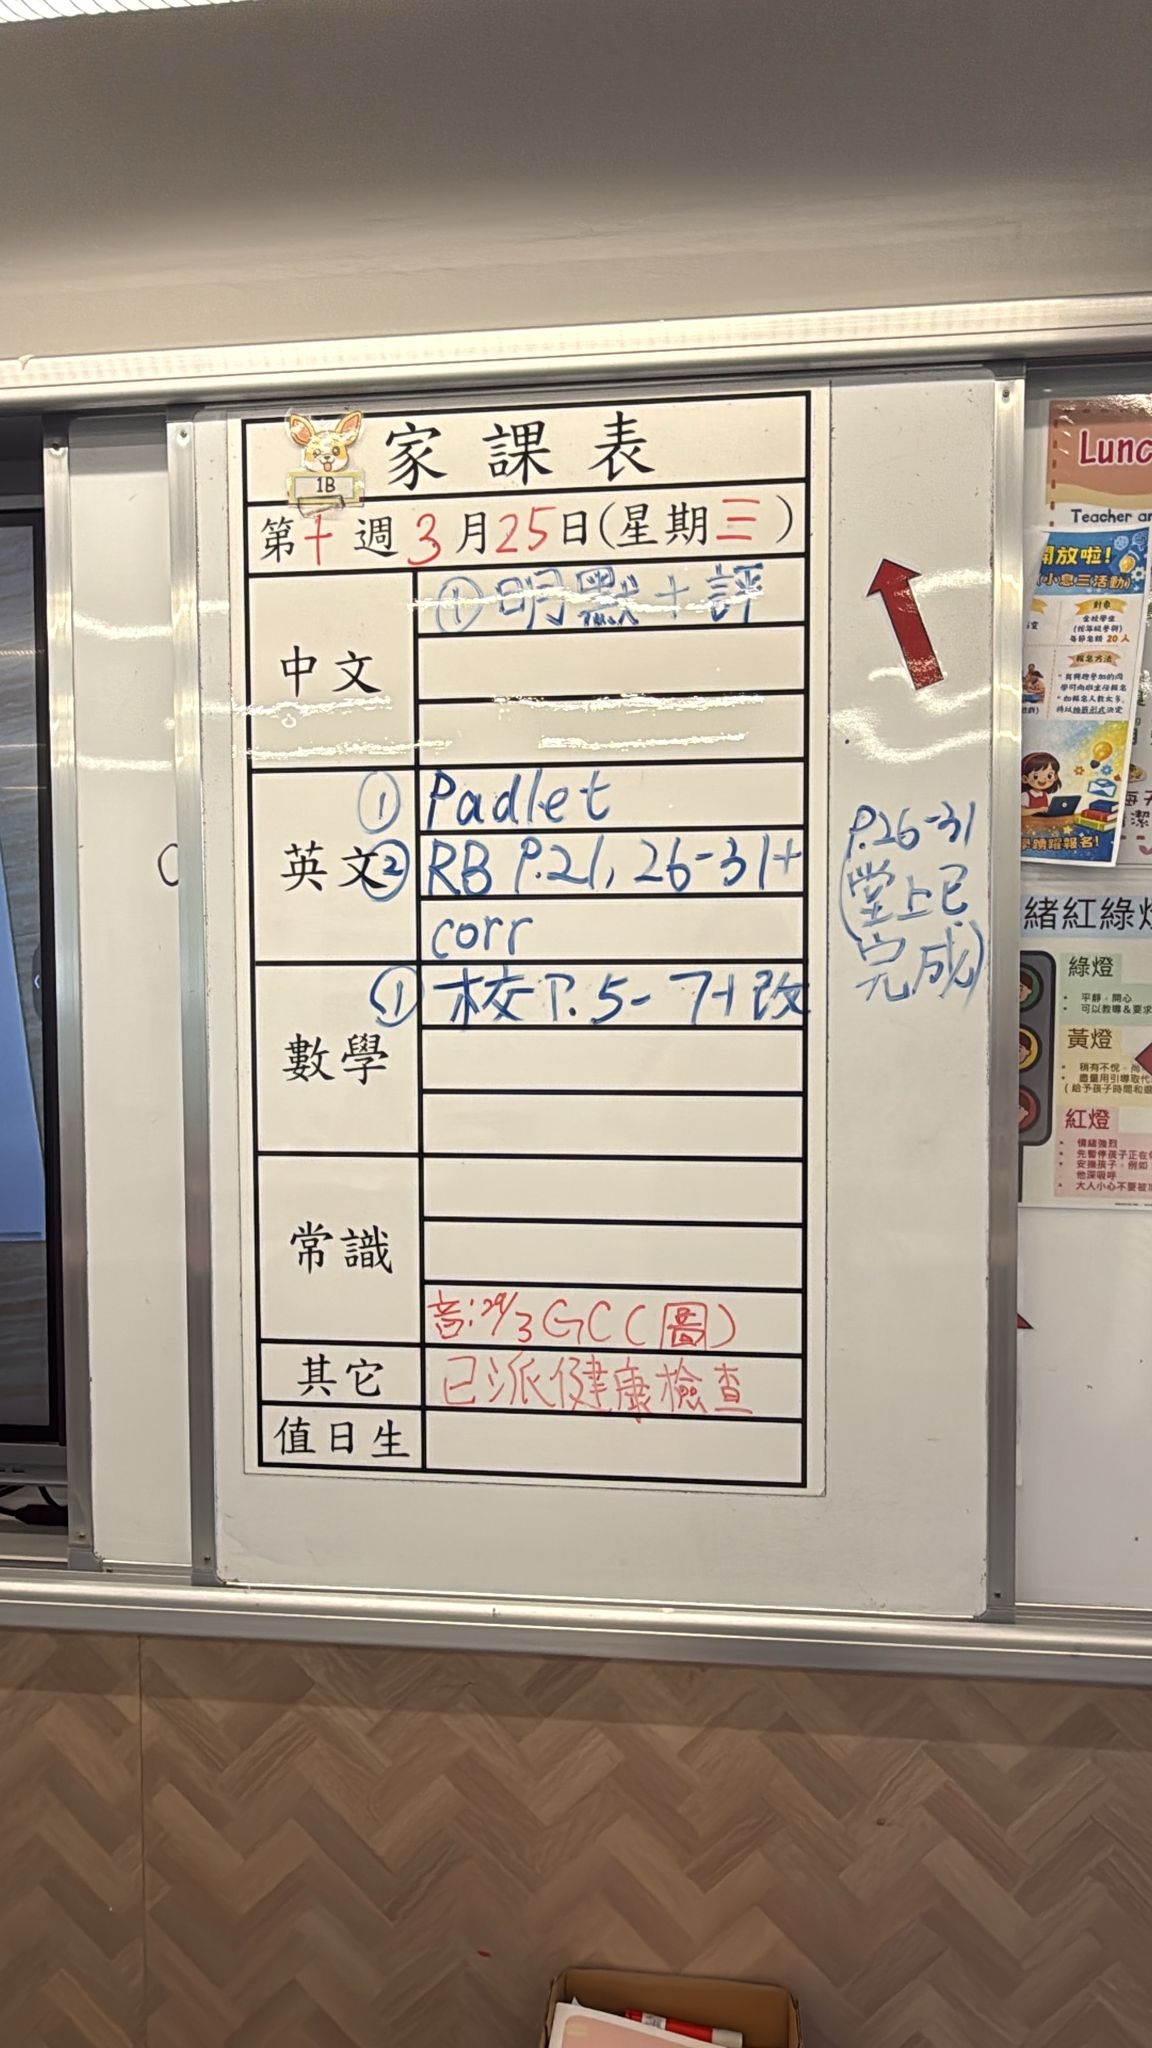 家課表
1B
第十週3月25日(星期三)
中文
①明默+評
英文
① Padlet
② RB P.21, 26-31+
corr
P.26-31
(堂上已
完成)
數學
① 校P.5-7+改
常識
音:29/3 GC(圖)
其它
已派健康檢查
值日生
Lunc
Teacher an
開放啦!
(小息三活動)
對象
全校學生
(按年級參與)
每節名額 20 人
報名方法
踴躍報名!
緒紅綠燈
綠燈
平靜,開心
可以教導&要求
黃燈
稍有不悅,尚
盡量用引導取代
(給予孩子時間和選
紅燈
情緒強烈
先暫停孩子正在
安撫孩子,例如
他深吸呼
大人小心不要被